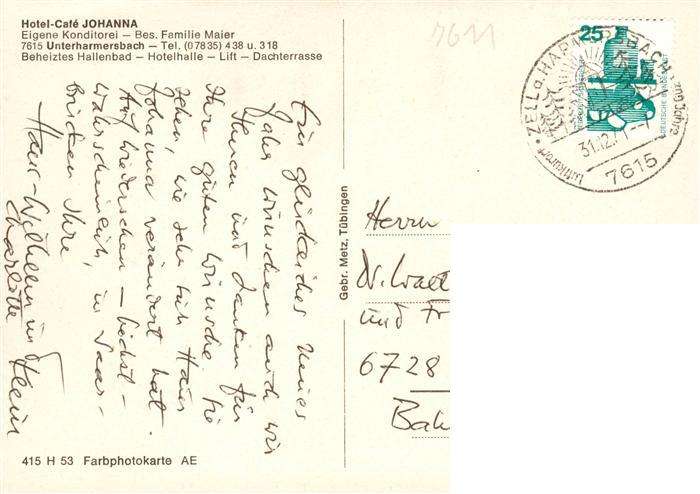 Hotel-Café JOHANNA
Eigene Konditorei — Bes. Familie Maier
7615 Unterharmersbach — Tel. (07835) 438 u. 318
Beheiztes Hallenbad — Hotelhalle — Lift — Dachterrasse
7611
25
DEUTSCHE BUNDESPOST
ZELL a. HARMERSBACH
Luftkurort
31.12.71
7615
Ein glückliches Neues
Jahr wünschen auch wir
Ihnen und danken für
Ihre guten Wünsche. Sie
sehen, wie sehr sich Haus
Johanna verändert hat.
Auf Wiedersehen — höchst-
wahrscheinlich, in Saar-
brücken Ihre
Hans-Wilhelm und
Charlotte Klein
Gebr. Metz, Tübingen
Herrn
und Fr
6728
415 H 53 Farbphotokarte AE